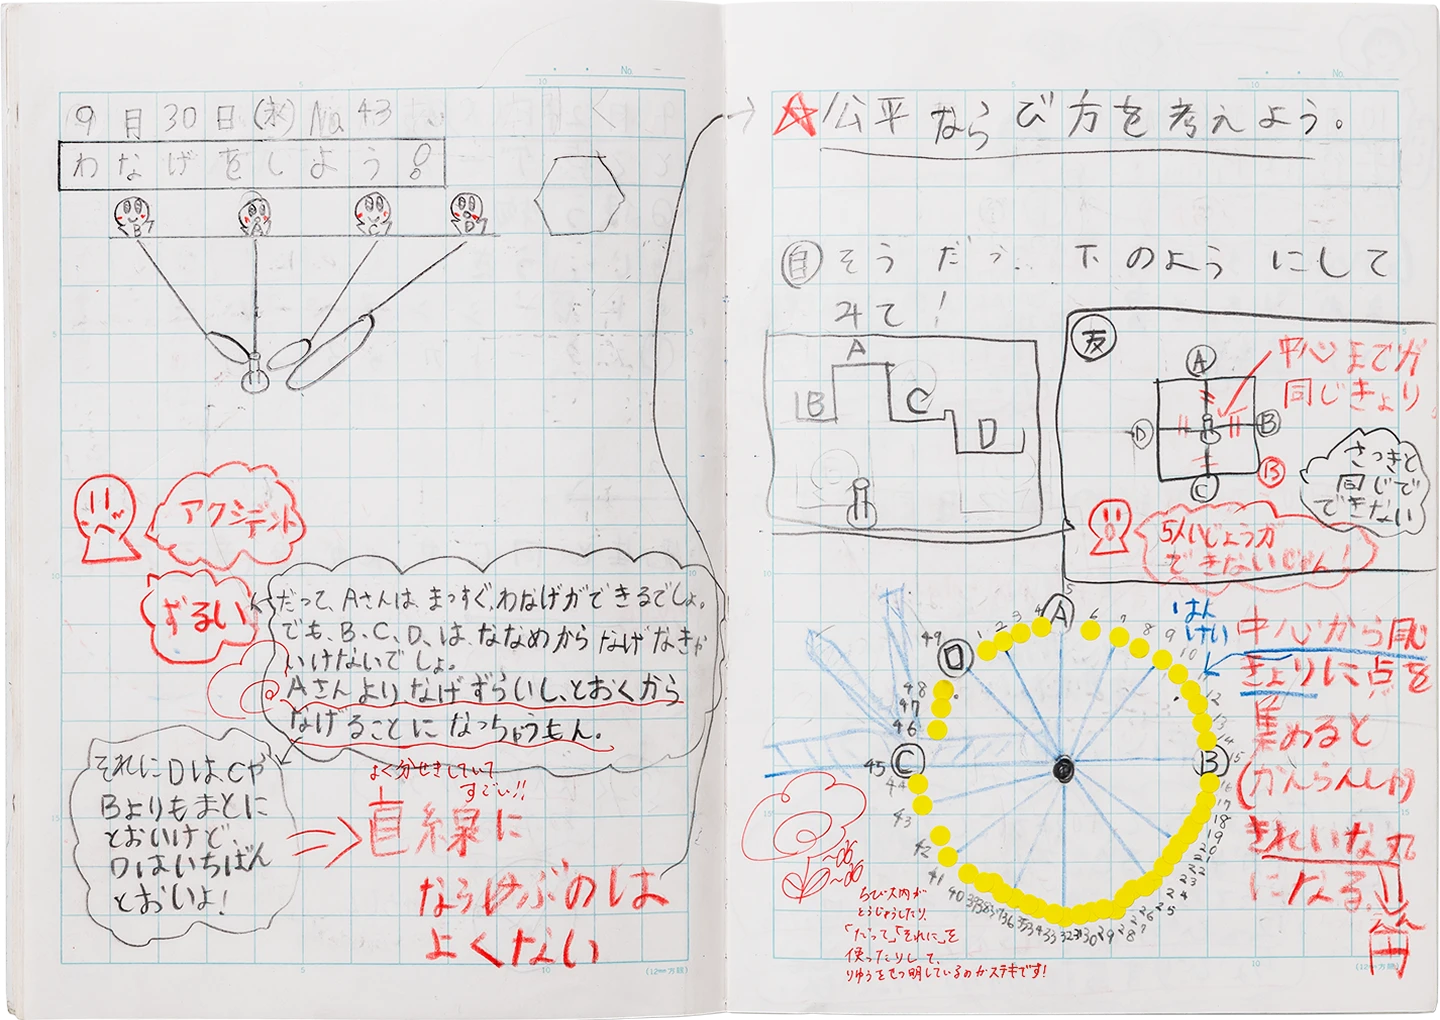 9月30日(水) No.43
わなげをしよう!
B
A
C
D
アクシデント
ずるい
だって、Aさんは、まっすぐ、わなげができるでしょ。
でも、B、C、D、は、ななめからなげなきゃ
いけないでしょ。
Aさんより、なげずらいし、とおくから
なげることになっちゃうもん。
それにDは、Cや
Bよりもまとに
とおいけど、
Dはいちばん
とおいよ!
よく分せきしていて
すごい!!
直線に
ならぶのは
よくない
No.
(12mm方眼)
No.
☆公平ならび方を考えよう。
自 そうだう、下のようにして
みて!
A
B
C
D
友
A
B
C
D
中心までが
同じきょり
さっきと
同じで
できない
5人いじょうが
できないじゃん!
A
B
C
D
1 2 3 4 5 6 7 8 9 10 12 13 14 15 16 17 18 19 20 21 22 23 24 25 26 27 28 29 30 31 32 33 34 35 36 37 38 39 40 41 42 43 44 45 46 47 48 49
はん
けい
中心から同じ
きょりに点を
集めると
(かんらんしゃ)
きれいな丸
になる。
円
ちび大肉が
とうじょうしたり、
「だって」「それに」を
使ったりして、
りゆうをせつ明しているのがステキです!
(12mm方眼)